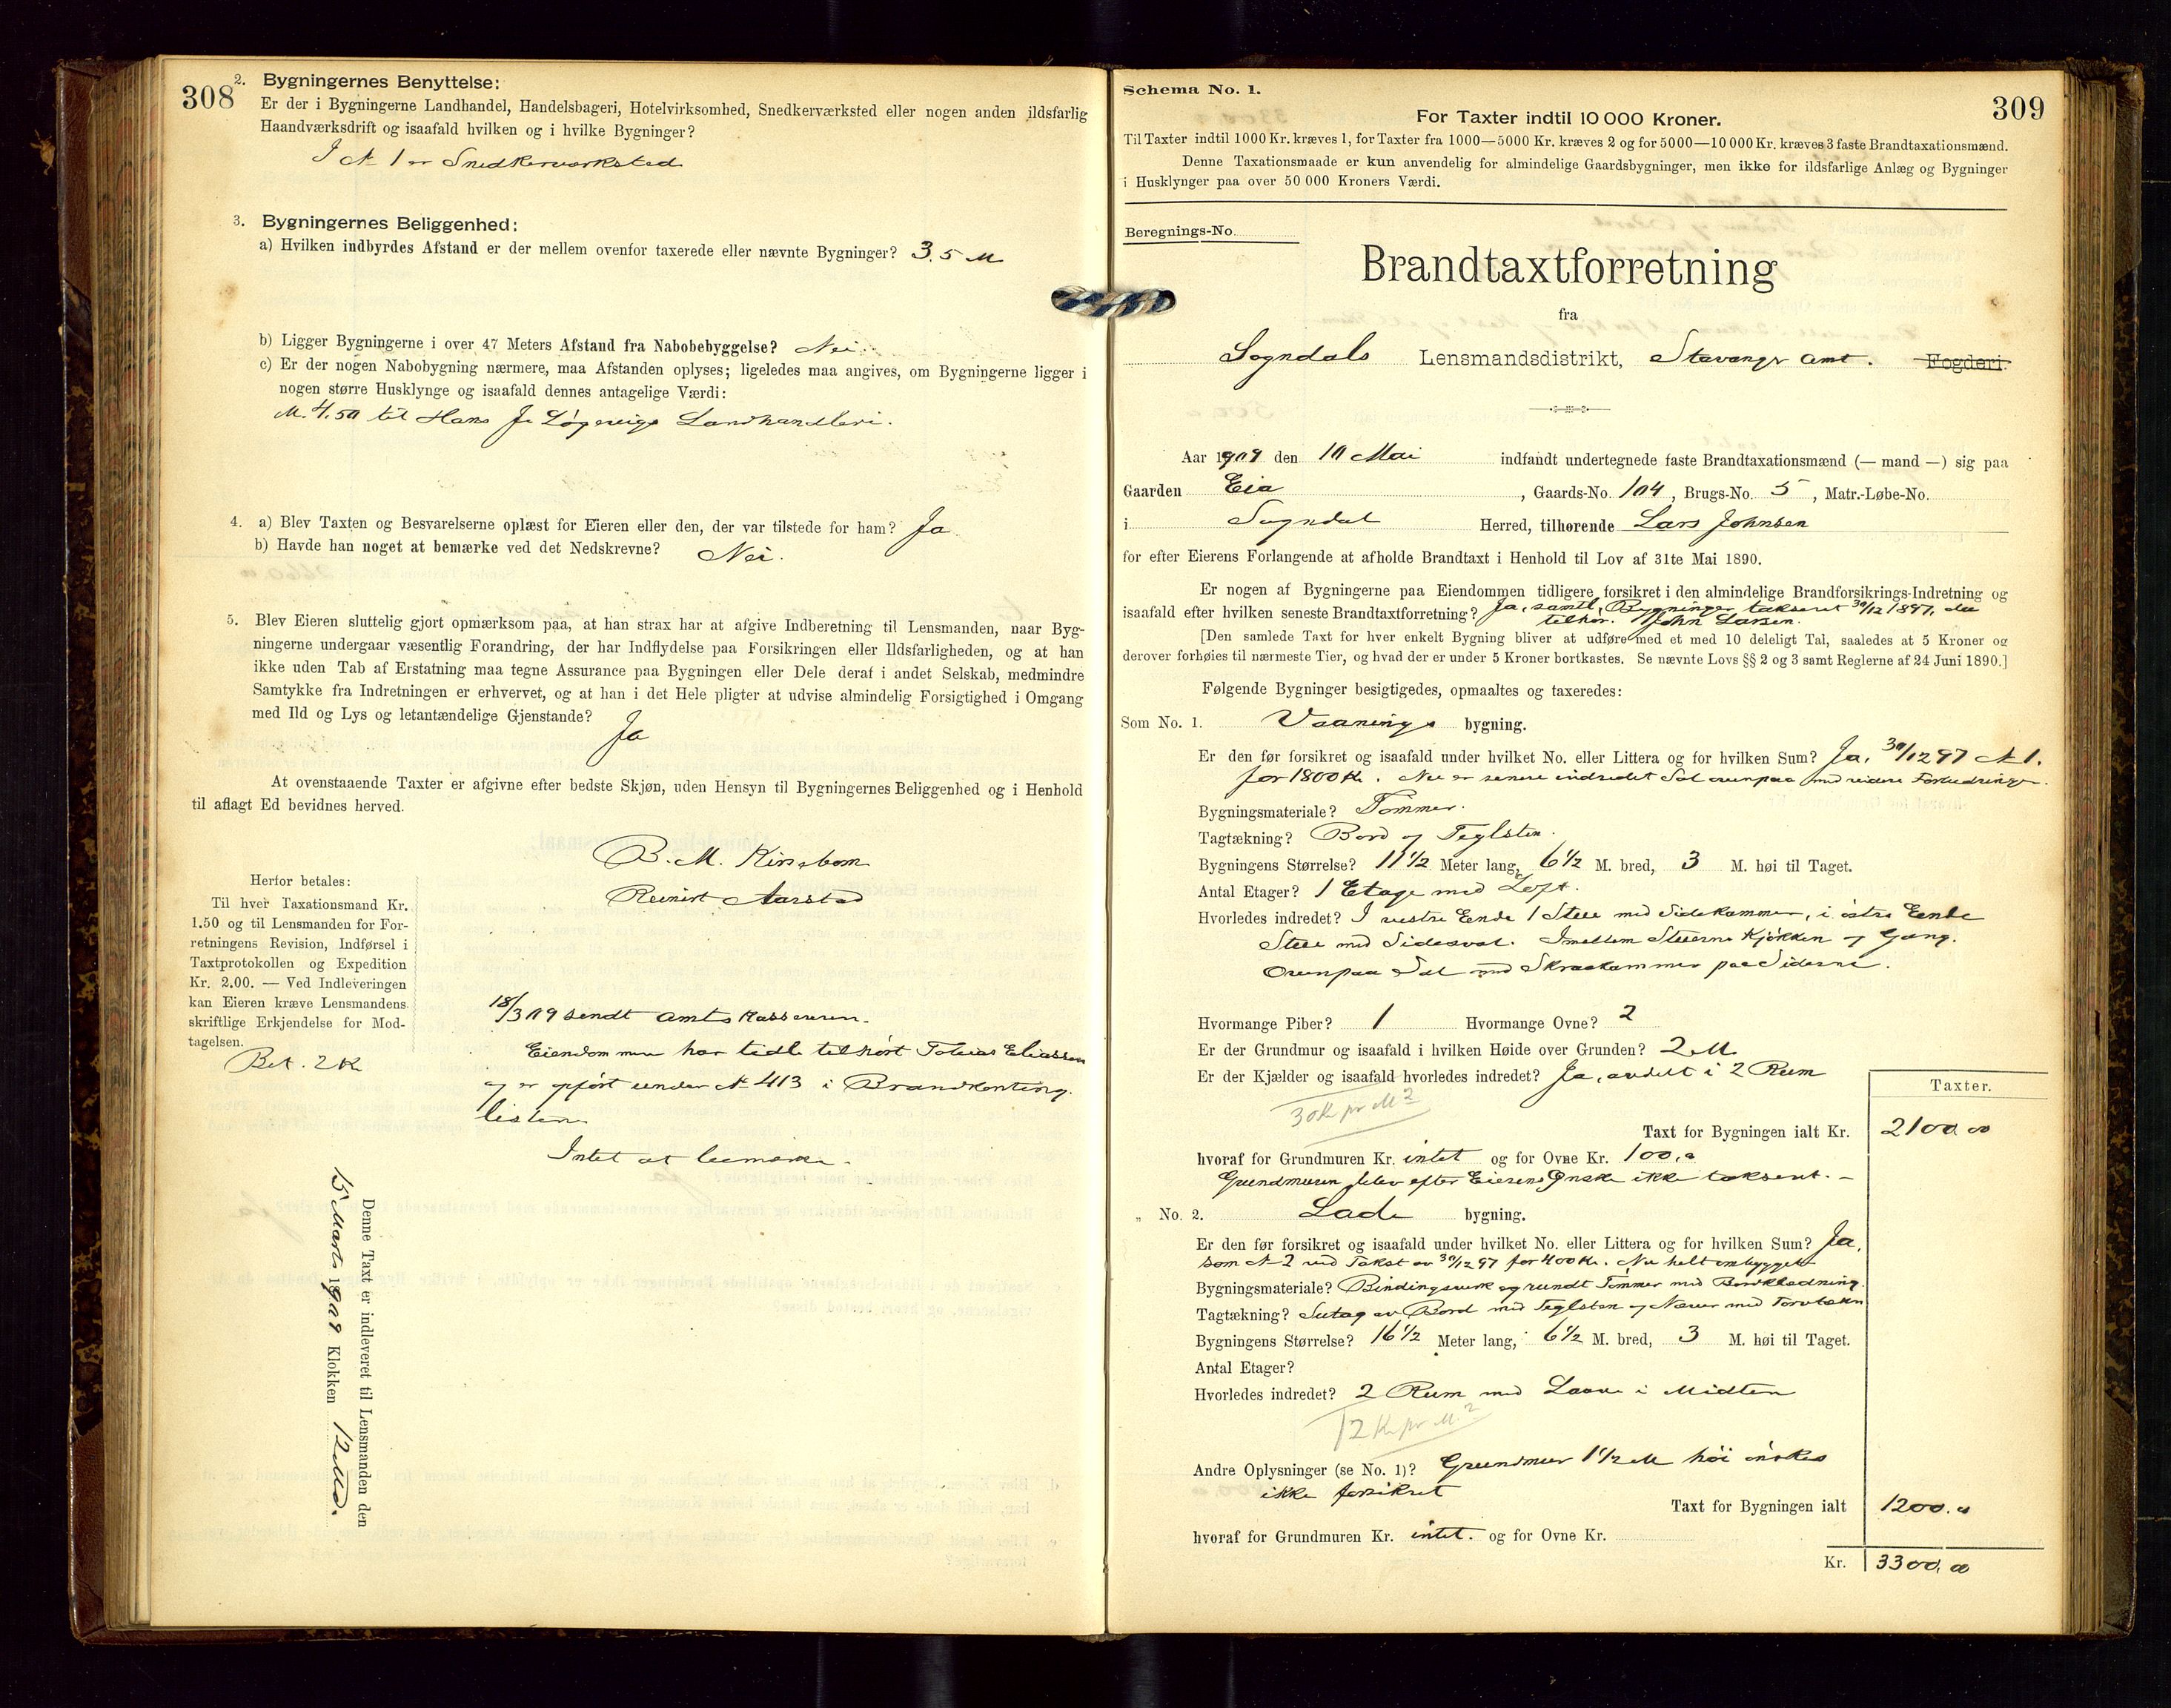 308
2. Bygningernes Benyttelse:
Er der i Bygningerne Landhandel, Handelsbageri, Hotelvirksomhed, Snedkerværksted eller nogen anden ildsfarlig
Haandværksdrift og isaafald hvilken og i hvilke Bygninger?
I № 1 er Snedkerværksted
3. Bygningernes Beliggenhed:
a) Hvilken indbyrdes Afstand er der mellem ovenfor taxerede eller nævnte Bygninger? 3.5 M
b) Ligger Bygningerne i over 47 Meters Afstand fra Nabobebyggelse? Nei.
c) Er der nogen Nabobygning nærmere, maa Afstanden oplyses; ligeledes maa angives, om Bygningerne ligger i
nogen større Husklynge og isaafald dennes antagelige Værdi:
M. 4.50 til Hans J. Løgereigs Landhandleri.
4. a) Blev Taxten og Besvarelserne oplæst for Eieren eller den, der var tilstede for ham? Ja
b) Havde han noget at bemærke ved det Nedskrevne? Nei.
5. Blev Eieren sluttelig gjort opmærksom paa, at han strax har at afgive Indberetning til Lensmanden, naar Byg-
ningerne undergaar væsentlig Forandring, der har Indflydelse paa Forsikringen eller Ildsfarligheden, og at han
ikke uden Tab af Erstatning maa tegne Assurance paa Bygningen eller Dele deraf i andet Selskab, medmindre
Samtykke fra Indretningen er erhvervet, og at han i det Hele pligter at udvise almindelig Forsigtighed i Omgang
med Ild og Lys og letantændelige Gjenstande? Ja
At ovenstaaende Taxter er afgivne efter bedste Skjøn, uden Hensyn til Bygningernes Beliggenhed og i Henhold
til aflagt Ed bevidnes herved.
B. M. Kirsebom
Reinert Aarstad
Herfor betales:
Til hver Taxationsmand Kr.
1.50 og til Lensmanden for For-
retningens Revision, Indførsel i
Taxtprotokollen og Expedition
Kr. 2.00. — Ved Indleveringen
kan Eieren kræve Lensmandens
skriftlige Erkjendelse for Mod-
tagelsen.
Bet. 2 Kr
18/3 09 sendt Amtskassereren.
Eiendommen har tidl. tilhørt Tobias Eliassen
og er opført under № 413 i Brandkonting.
listen
Intet at bemærke.
Denne Taxt er indleveret til Lensmanden den
15 Marts 1909 Klokken 12 Md.
Schema No. 1.
309
For Taxter indtil 10 000 Kroner.
Til Taxter indtil 1000 Kr. kræves 1, for Taxter fra 1000—5000 Kr. kræves 2 og for 5000—10 000 Kr. kræves 3 faste Brandtaxationsmænd.
Denne Taxationsmaade er kun anvendelig for almindelige Gaardsbygninger, men ikke for ildsfarlige Anlæg og Bygninger
i Husklynger paa over 50 000 Kroners Værdi.
Beregnings-No.
Brandtaxtforretning
fra
Sogndals Lensmandsdistrikt, Stavanger Amt. Fogderi.
Aar 1909 den 10 Mai indfandt undertegnede faste Brandtaxationsmænd (— mand —) sig paa
Gaarden Eia, Gaards-No. 104, Brugs-No. 5, Matr.-Løbe-No.
i Sogndal Herred, tilhørende Lars Johnsen
for efter Eierens Forlangende at afholde Brandtaxt i Henhold til Lov af 31te Mai 1890.
Er nogen af Bygningerne paa Eiendommen tidligere forsikret i den almindelige Brandforsikrings-Indretning og
isaafald efter hvilken seneste Brandtaxtforretning? Ja, samtl. Bygninger takseret 30/12 1897, da
tilhør. John Larsen.
[Den samlede Taxt for hver enkelt Bygning bliver at udføre med et med 10 deleligt Tal, saaledes at 5 Kroner og
derover forhøies til nærmeste Tier, og hvad der er under 5 Kroner bortkastes. Se nævnte Lovs §§ 2 og 3 samt Reglerne af 24 Juni 1890.]
Følgende Bygninger besigtigedes, opmaaltes og taxeredes:
Som No. 1. Vaanings bygning.
Er den før forsikret og isaafald under hvilket No. eller Littera og for hvilken Sum? Ja, 30/12 97 № 1.
for 1800 Kr. Nu er senere indredet Sal ovenpaa med videre Forbedringer.
Bygningsmateriale? Tømmer.
Tagtækning? Bord og Teglsten.
Bygningens Størrelse? 11 1/2 Meter lang, 6 1/2 M. bred, 3 M. høi til Taget.
Antal Etager? 1 Etage med Loft.
Hvorledes indredet? I vestre Ende 1 Stue med Sidekammer, i østre Ende
Stue med Sidesval. Imellem Stuerne Kjøkken og Gang.
Ovenpaa Sal med Skraakammer paa Siderne.
Hvormange Piber? 1 Hvormange Ovne? 2
Er der Grundmur og isaafald i hvilken Høide over Grunden? 2 M
Er der Kjælder og isaafald hvorledes indredet? Ja, avdelt i 2 Rum
30 Kr pr M2
Taxter.
Taxt for Bygningen ialt Kr. 2100.00
hvoraf for Grundmuren Kr. intet og for Ovne Kr. 100.
Grundmuren blev efter Eierens Ønske ikke takseret. —
„ No. 2. Lade bygning.
Er den før forsikret og isaafald under hvilket No. eller Littera og for hvilken Sum? Ja,
som № 2 ved Takst av 30/12 97 for 400 Kr. Nu helt ombygget
Bygningsmateriale? Bindingsverk og rundt Tømmer med Bordklædning.
Tagtækning? Sutag av Bord med Teglsten og Næver med Torvtækn
Bygningens Størrelse? 16 1/2 Meter lang, 6 1/2 M. bred, 3 M. høi til Taget.
Antal Etager?
Hvorledes indredet? 2 Rum med Laave i Midten
12 Kr pr M.2
Andre Oplysninger (se No. 1)? Grundmur 1 1/2 M høi ønskes
ikke forsikret
Taxt for Bygningen ialt 1200.
hvoraf for Grundmuren Kr. intet. og for Ovne Kr.
Kr. 3300.00